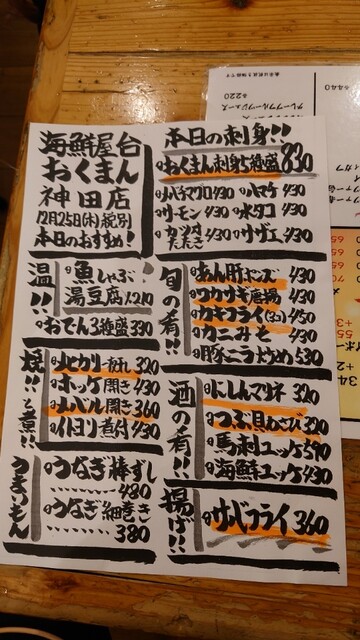 海鮮屋台
おくまん
神田店
12月25日(木)税別
本日のおすすめ!
本日の刺身!!
おくまん刺身5種盛 830
メバチマグロ 430
ハマチ 430
サーモン 430
水タコ 430
カツオたたき 430
サザエ 430
温!!
魚しゃぶ
湯豆腐 1210
おでん3種盛 390
焼!!と煮!!
ホッケ開き 430
メバル開き 360
イトヨリ煮付 430
うまいもん
うなぎ棒ずし
480
うなぎ細巻き
380
旬の肴!!
あん肝ポン酢 430
ワカサギ唐揚 430
カキフライ(3コ) 450
カニみそ 430
豚ニラ
530
酒の肴!!
にしんマリネ 320
つぶ貝わさび 320
馬刺ユッケ 590
海鮮ユッケ 430
揚げ!!
サバフライ 360
¥220
グレープフルーツジュース
¥440